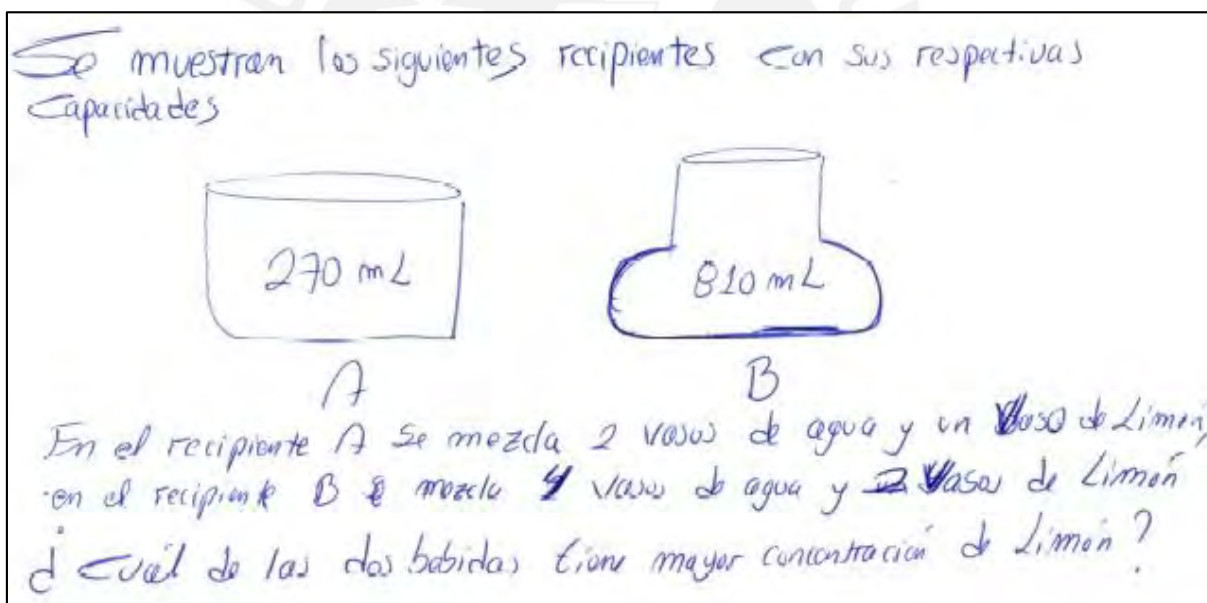 Se muestran los siguientes recipientes con sus respectivas
capacidades
270 mL
810 mL
A
B
En el recipiente A se mezcla 2 vasos de agua y un Vaso de Limón,
en el recipiente B se mezcla 4 vasos de agua y 2 Vasos de Limón
¿Cuál de las dos bebidas tiene mayor concentración de Limón?